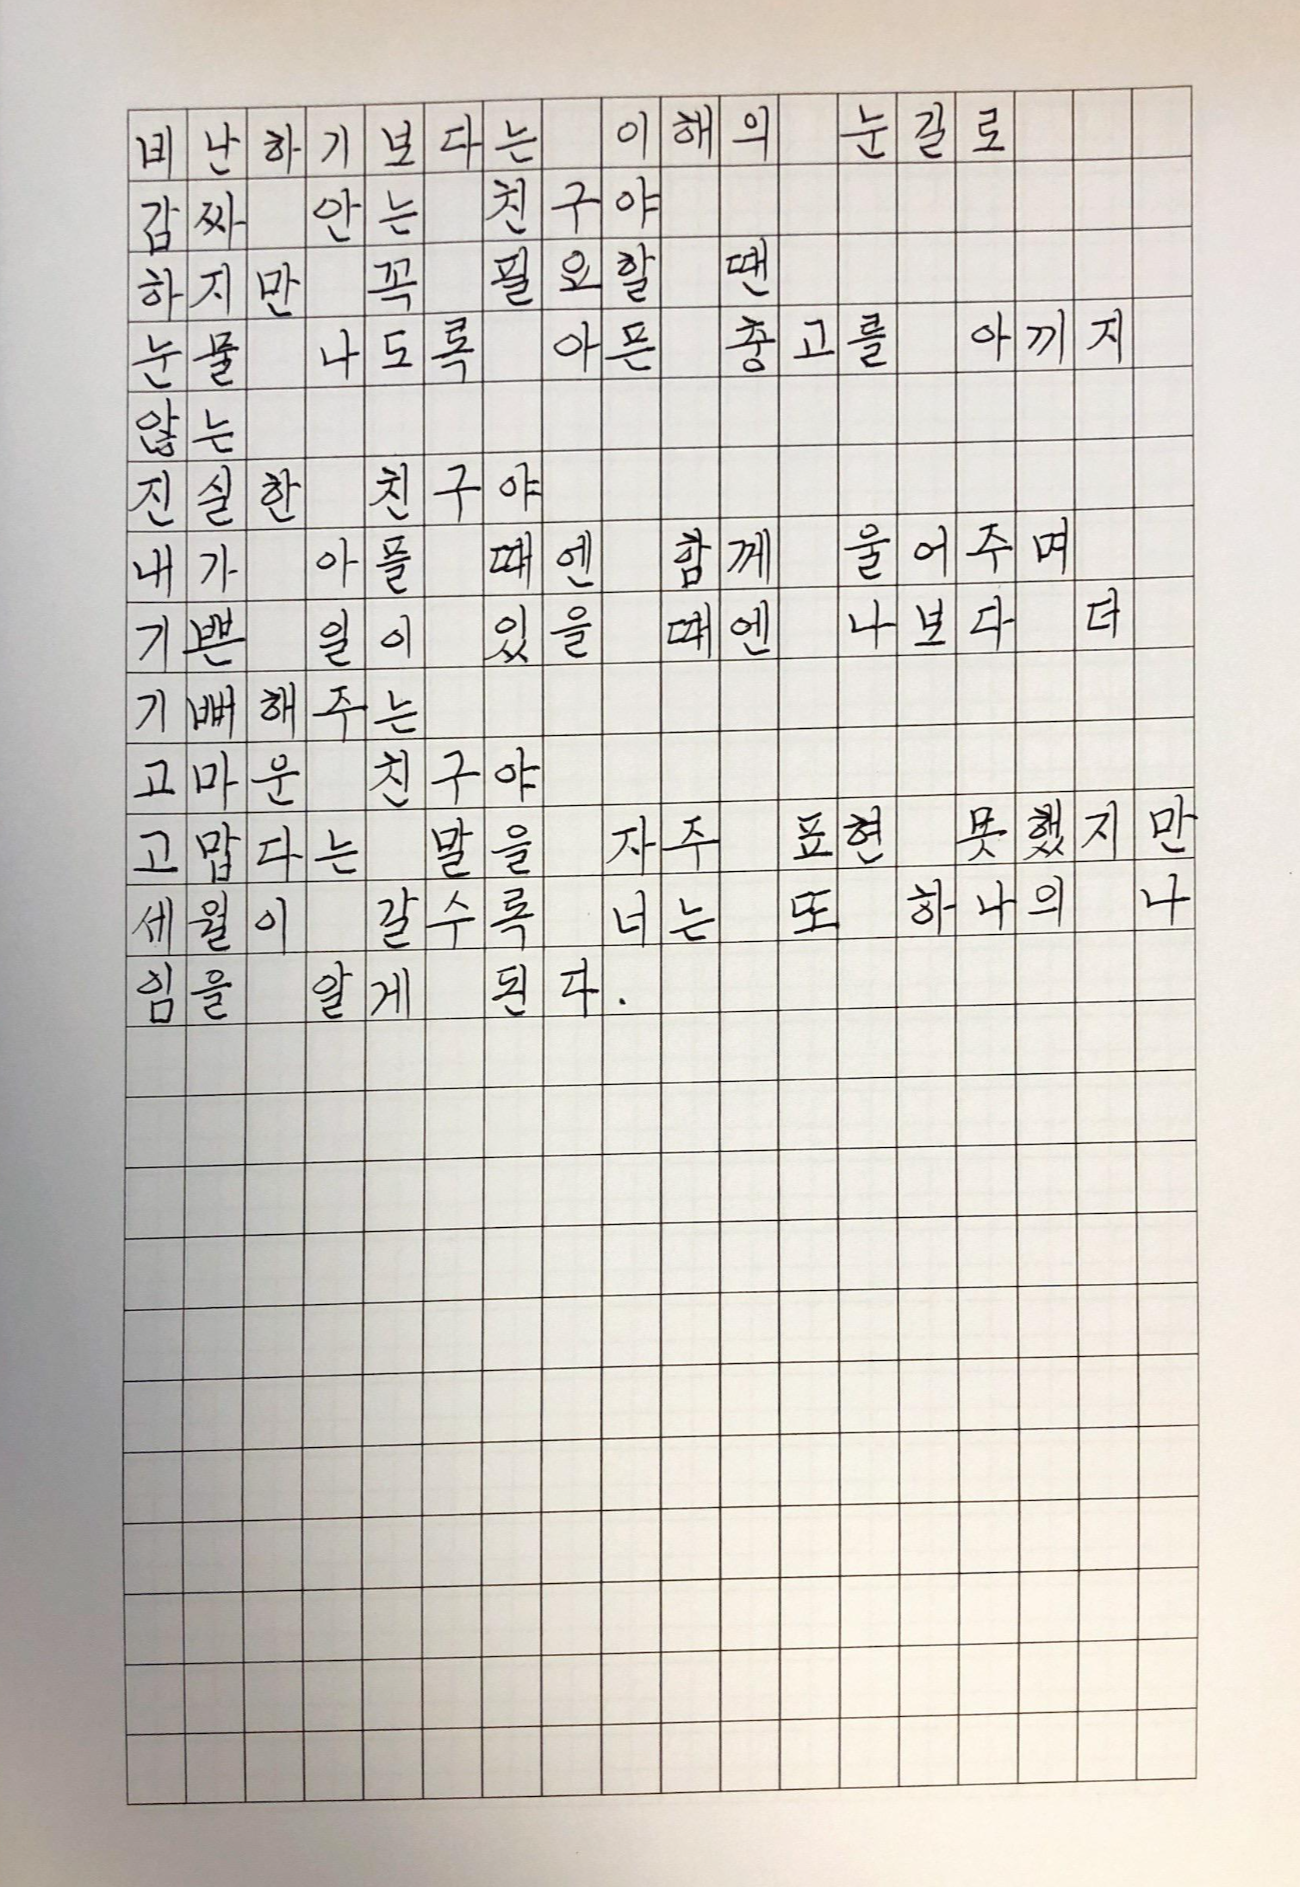 비난하기보다는 이해의 눈길로
감싸 안는 친구야
하지만 꼭 필요할 땐
눈물 나도록 아픈 충고를 아끼지
않는
진실한 친구야
내가 아플 때엔 함께 울어주며
기쁜 일이 있을 때엔 나보다 더
기뻐해주는
고마운 친구야
고맙다는 말을 자주 표현 못했지만
세월이 갈수록 너는 또 하나의 나
임을 알게 된다.